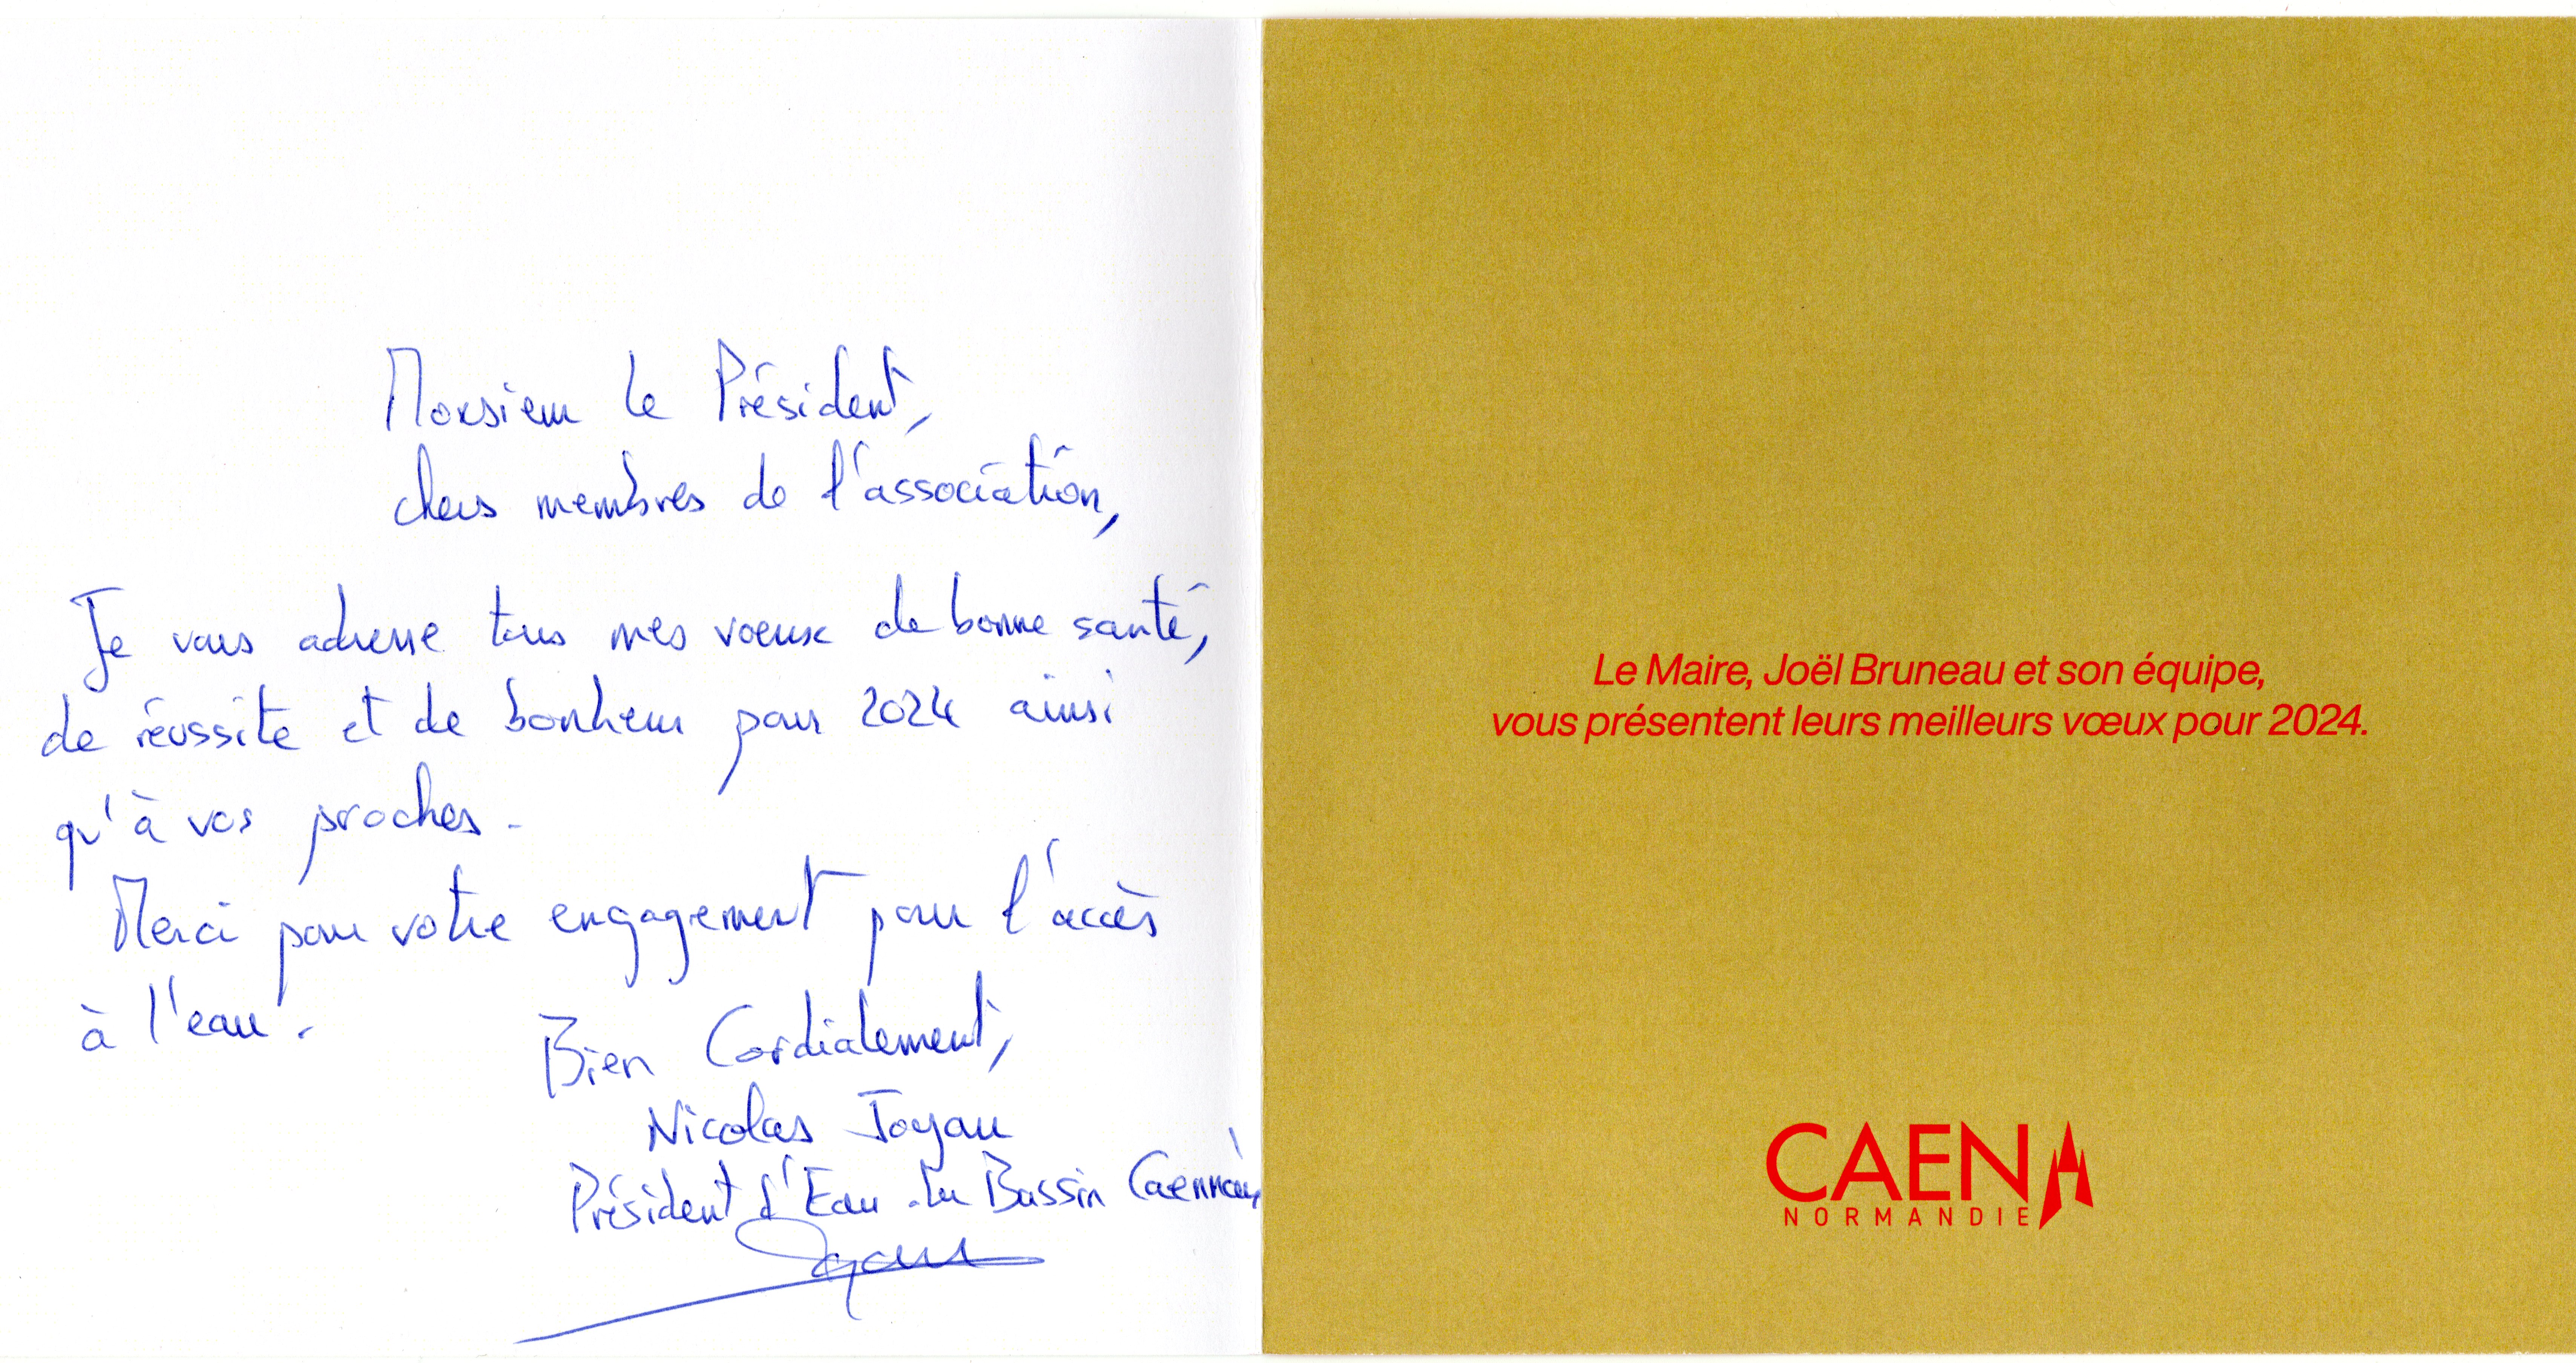 Monsieur le Président,
chers membres de l'association,
Je vous adresse tous mes voeux de bonne santé,
de réussite et de bonheur pour 2024 ainsi
qu'à vos proches.
Merci pour votre engagement pour l'accès
à l'eau.
Bien Cordialement,
Nicolas Joyau
Président d'Eau du Bassin Caennais
Joyau
Le Maire, Joël Bruneau et son équipe,
vous présentent leurs meilleurs vœux pour 2024.
CAEN
NORMANDIE